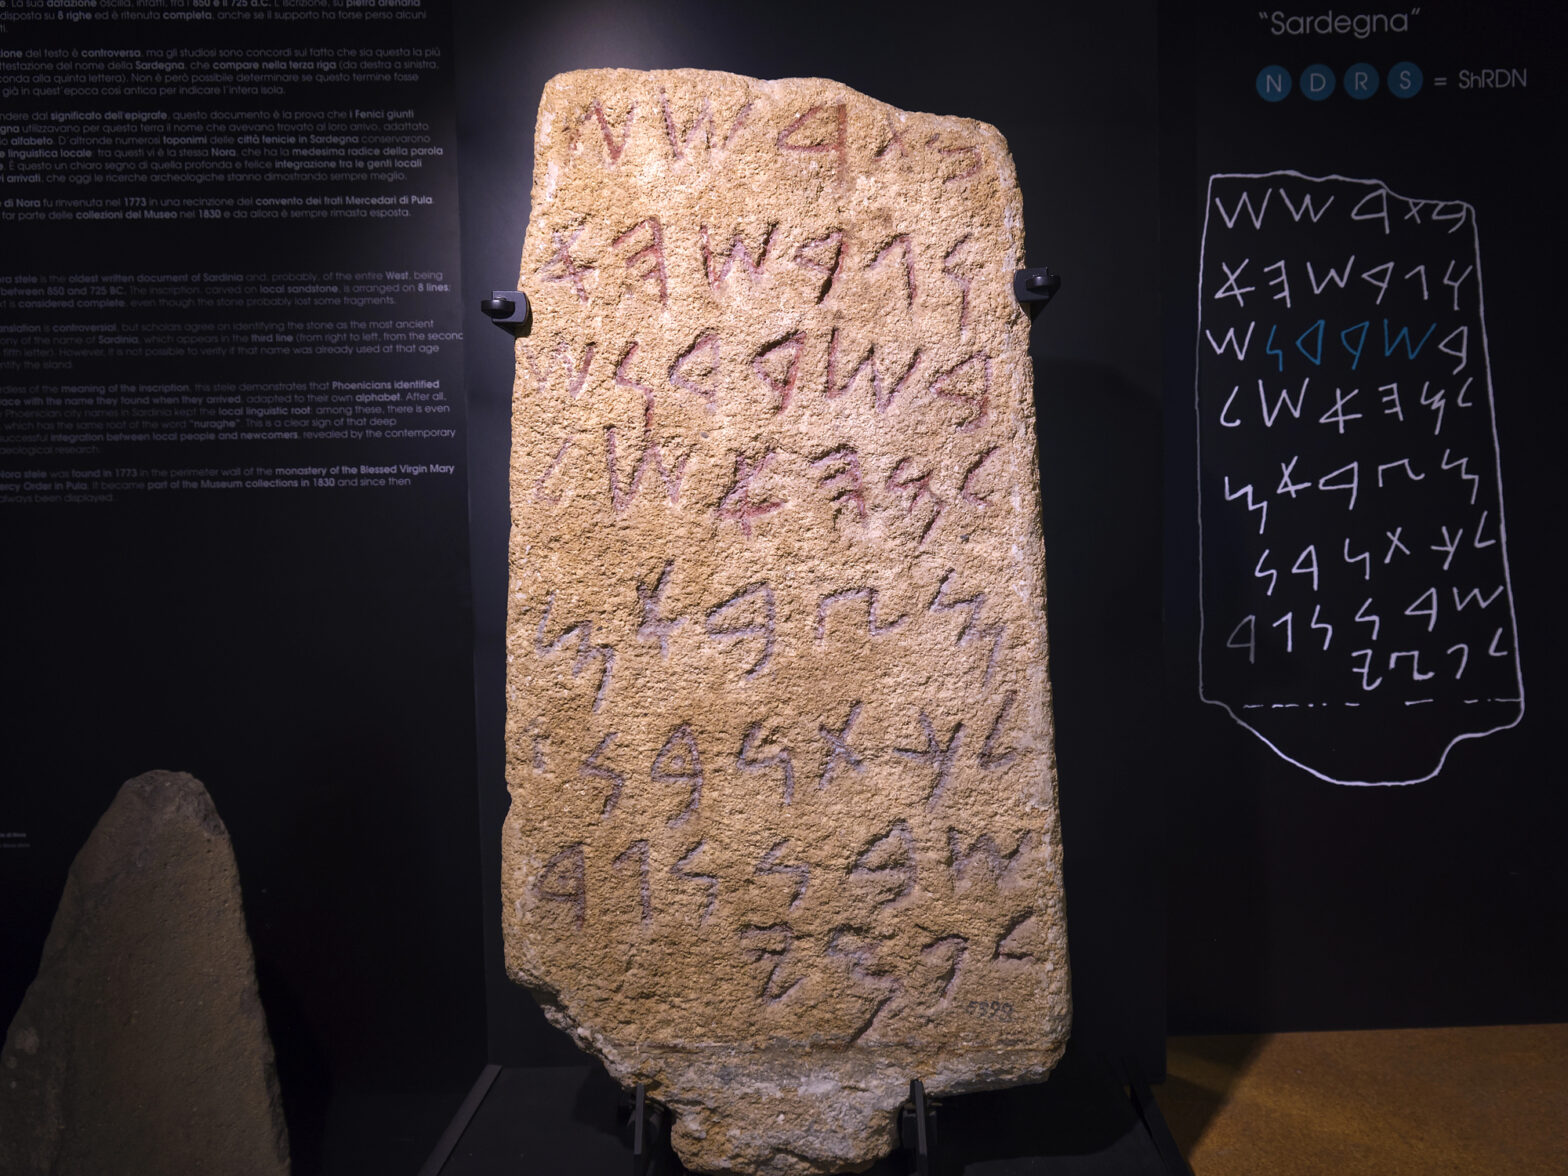 La sua datazione oscilla, infatti, fra l'850 e il 725 a.C. L'iscrizione, su pietra arenaria
disposta su 8 righe ed è ritenuta completa, anche se il supporto ha forse perso alcuni
del testo è controversa, ma gli studiosi sono concordi sul fatto che sia questa la più
del nome della Sardegna, che compare nella terza riga (da destra a sinistra,
alla quinta lettera). Non è però possibile determinare se questo termine fosse
già in quest'epoca così antica per indicare l'intera isola.
dal significato dell'epigrafe, questo documento è la prova che i Fenici giunti
utilizzavano per questa terra il nome che avevano trovato al loro arrivo, adattato
alfabeto. D'altronde numerosi toponimi delle città fenicie in Sardegna conservarono
linguistica locale: tra questi vi è la stessa Nora, che ha la medesima radice della parola
È questo un chiaro segno di quella profonda e felice integrazione tra le genti locali
arrivati, che oggi le ricerche archeologiche stanno dimostrando sempre meglio.
di Nora fu rinvenuta nel 1773 in una recinzione del convento dei frati Mercedari di Pula.
far parte delle collezioni del Museo nel 1830 e da allora è sempre rimasta esposta.
stele is the oldest written document of Sardinia and, probably, of the entire West, being
between 850 and 725 BC. The inscription, carved on local sandstone, is arranged on 8 lines
is considered complete, even though the stone probably lost some fragments.
is controversial, but scholars agree on identifying the stone as the most ancient
of the name of Sardinia, which appears in the third line (from right to left, from the second
fifth letter). However, it is not possible to verify if that name was already used at that age
the island.
of the meaning of the inscription, this stele demonstrates that Phoenicians identified
with the name they found when they arrived, adapted to their own alphabet. After all,
Phoenician city names in Sardinia kept the local linguistic root: among these, there is even
which has the same root of the word "nuraghe". This is a clear sign of that deep
successful integration between local people and newcomers, revealed by the contemporary
research.
stele was found in 1773 in the perimeter wall of the monastery of the Blessed Virgin Mary
Order in Pula. It became part of the Museum collections in 1830 and since then
always been displayed.
𐤁𐤕𐤓𐤔𐤔
𐤅𐤂𐤓𐤔𐤄𐤀
𐤁𐤔𐤓𐤃𐤍𐤔
𐤋𐤌𐤄𐤀𐤔𐤋
𐤌𐤑𐤁𐤀𐤌
𐤋𐤊𐤕𐤍𐤁𐤍
𐤔𐤁𐤍𐤍𐤂𐤃
𐤋𐤐𐤌𐤉
"Sardegna"
N D R S = ShRDN
𐤁𐤕𐤓𐤔𐤔
𐤅𐤂𐤓𐤔𐤄𐤀
𐤁𐤔𐤓𐤃𐤍𐤔
𐤋𐤌𐤄𐤀𐤔𐤋
𐤌𐤑𐤁𐤀𐤌
𐤋𐤊𐤕𐤍𐤁𐤍
𐤔𐤁𐤍𐤍𐤂𐤃
𐤋𐤐𐤌𐤉